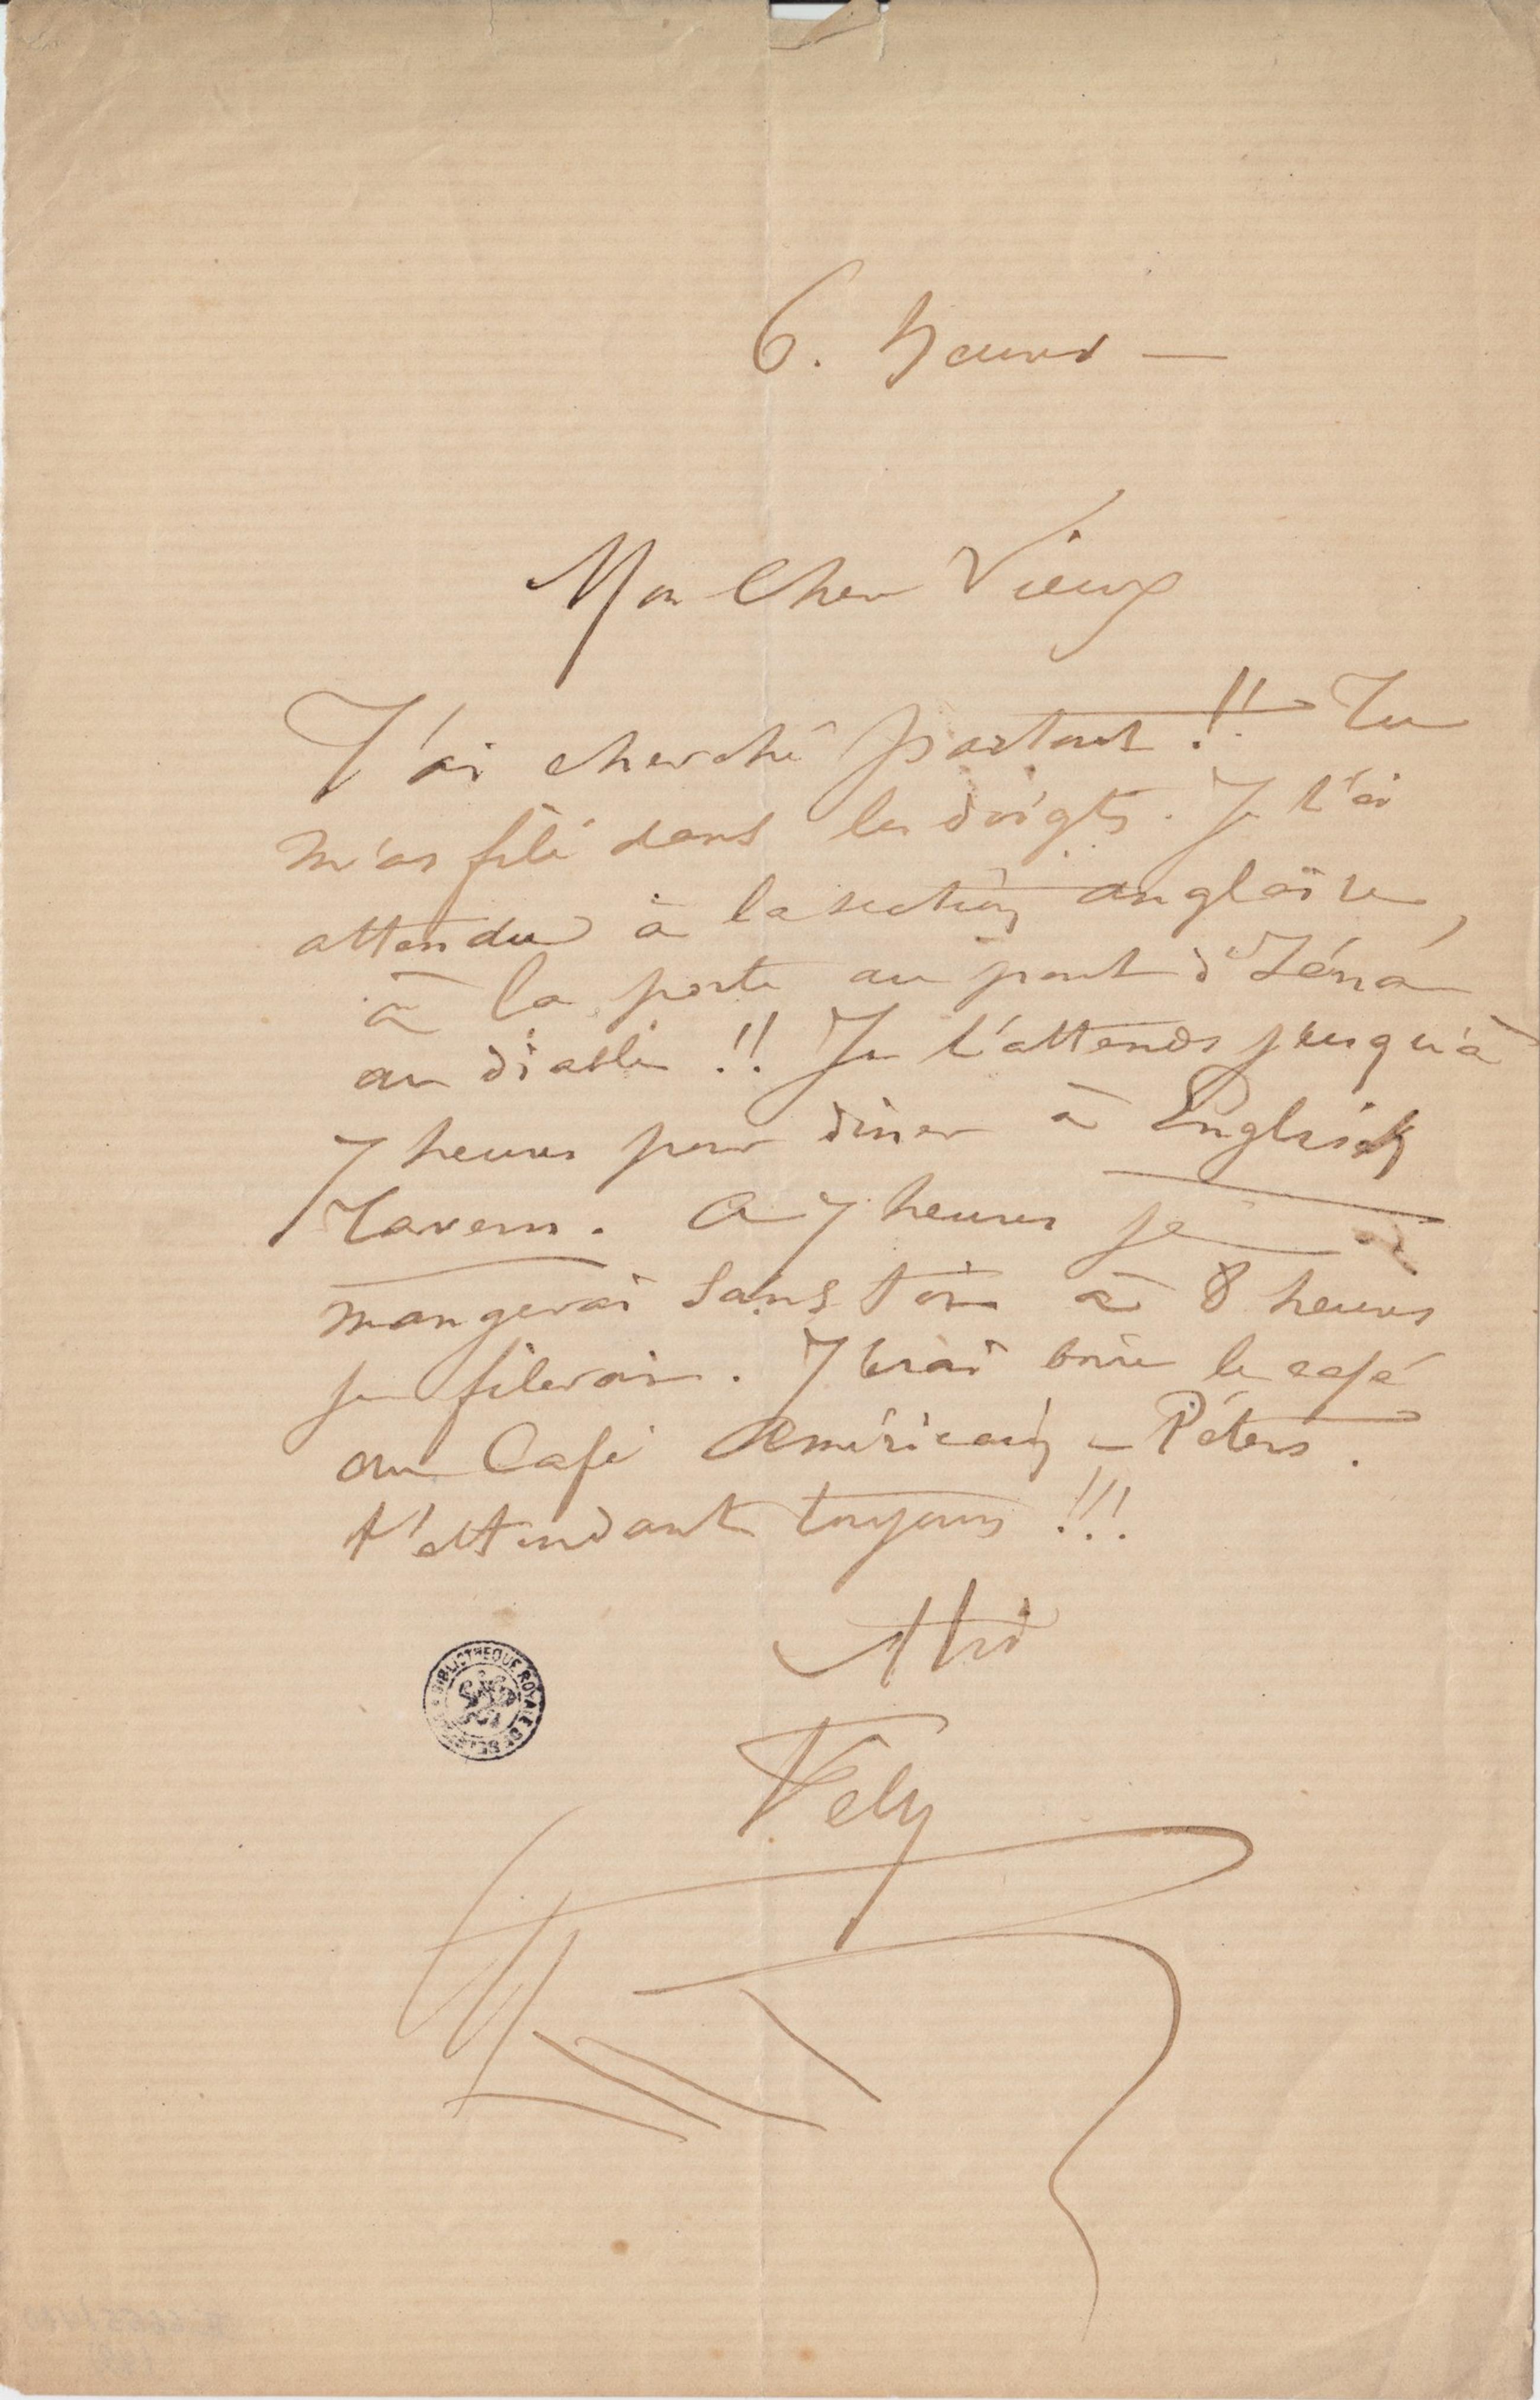 6. heures —
Mon Cher Vieux
J'ai cherché partout !! Tu
m'as filé dans les doigts. Je t'ai
attendu à la section anglaise,
à la porte au pont d'Iéna
au diable !! Je t'attends jusqu'à
7 heures pour diner à English
Tavern. A 7 heures je
mangerai sans toi à 8 heures
je filerai. J'irai boire le café
au Café Américain – Péters.
t'attendant toujours !!!
à toi
Fély
BIBLIOTHÈQUE ROYALE DE BELGIQUE